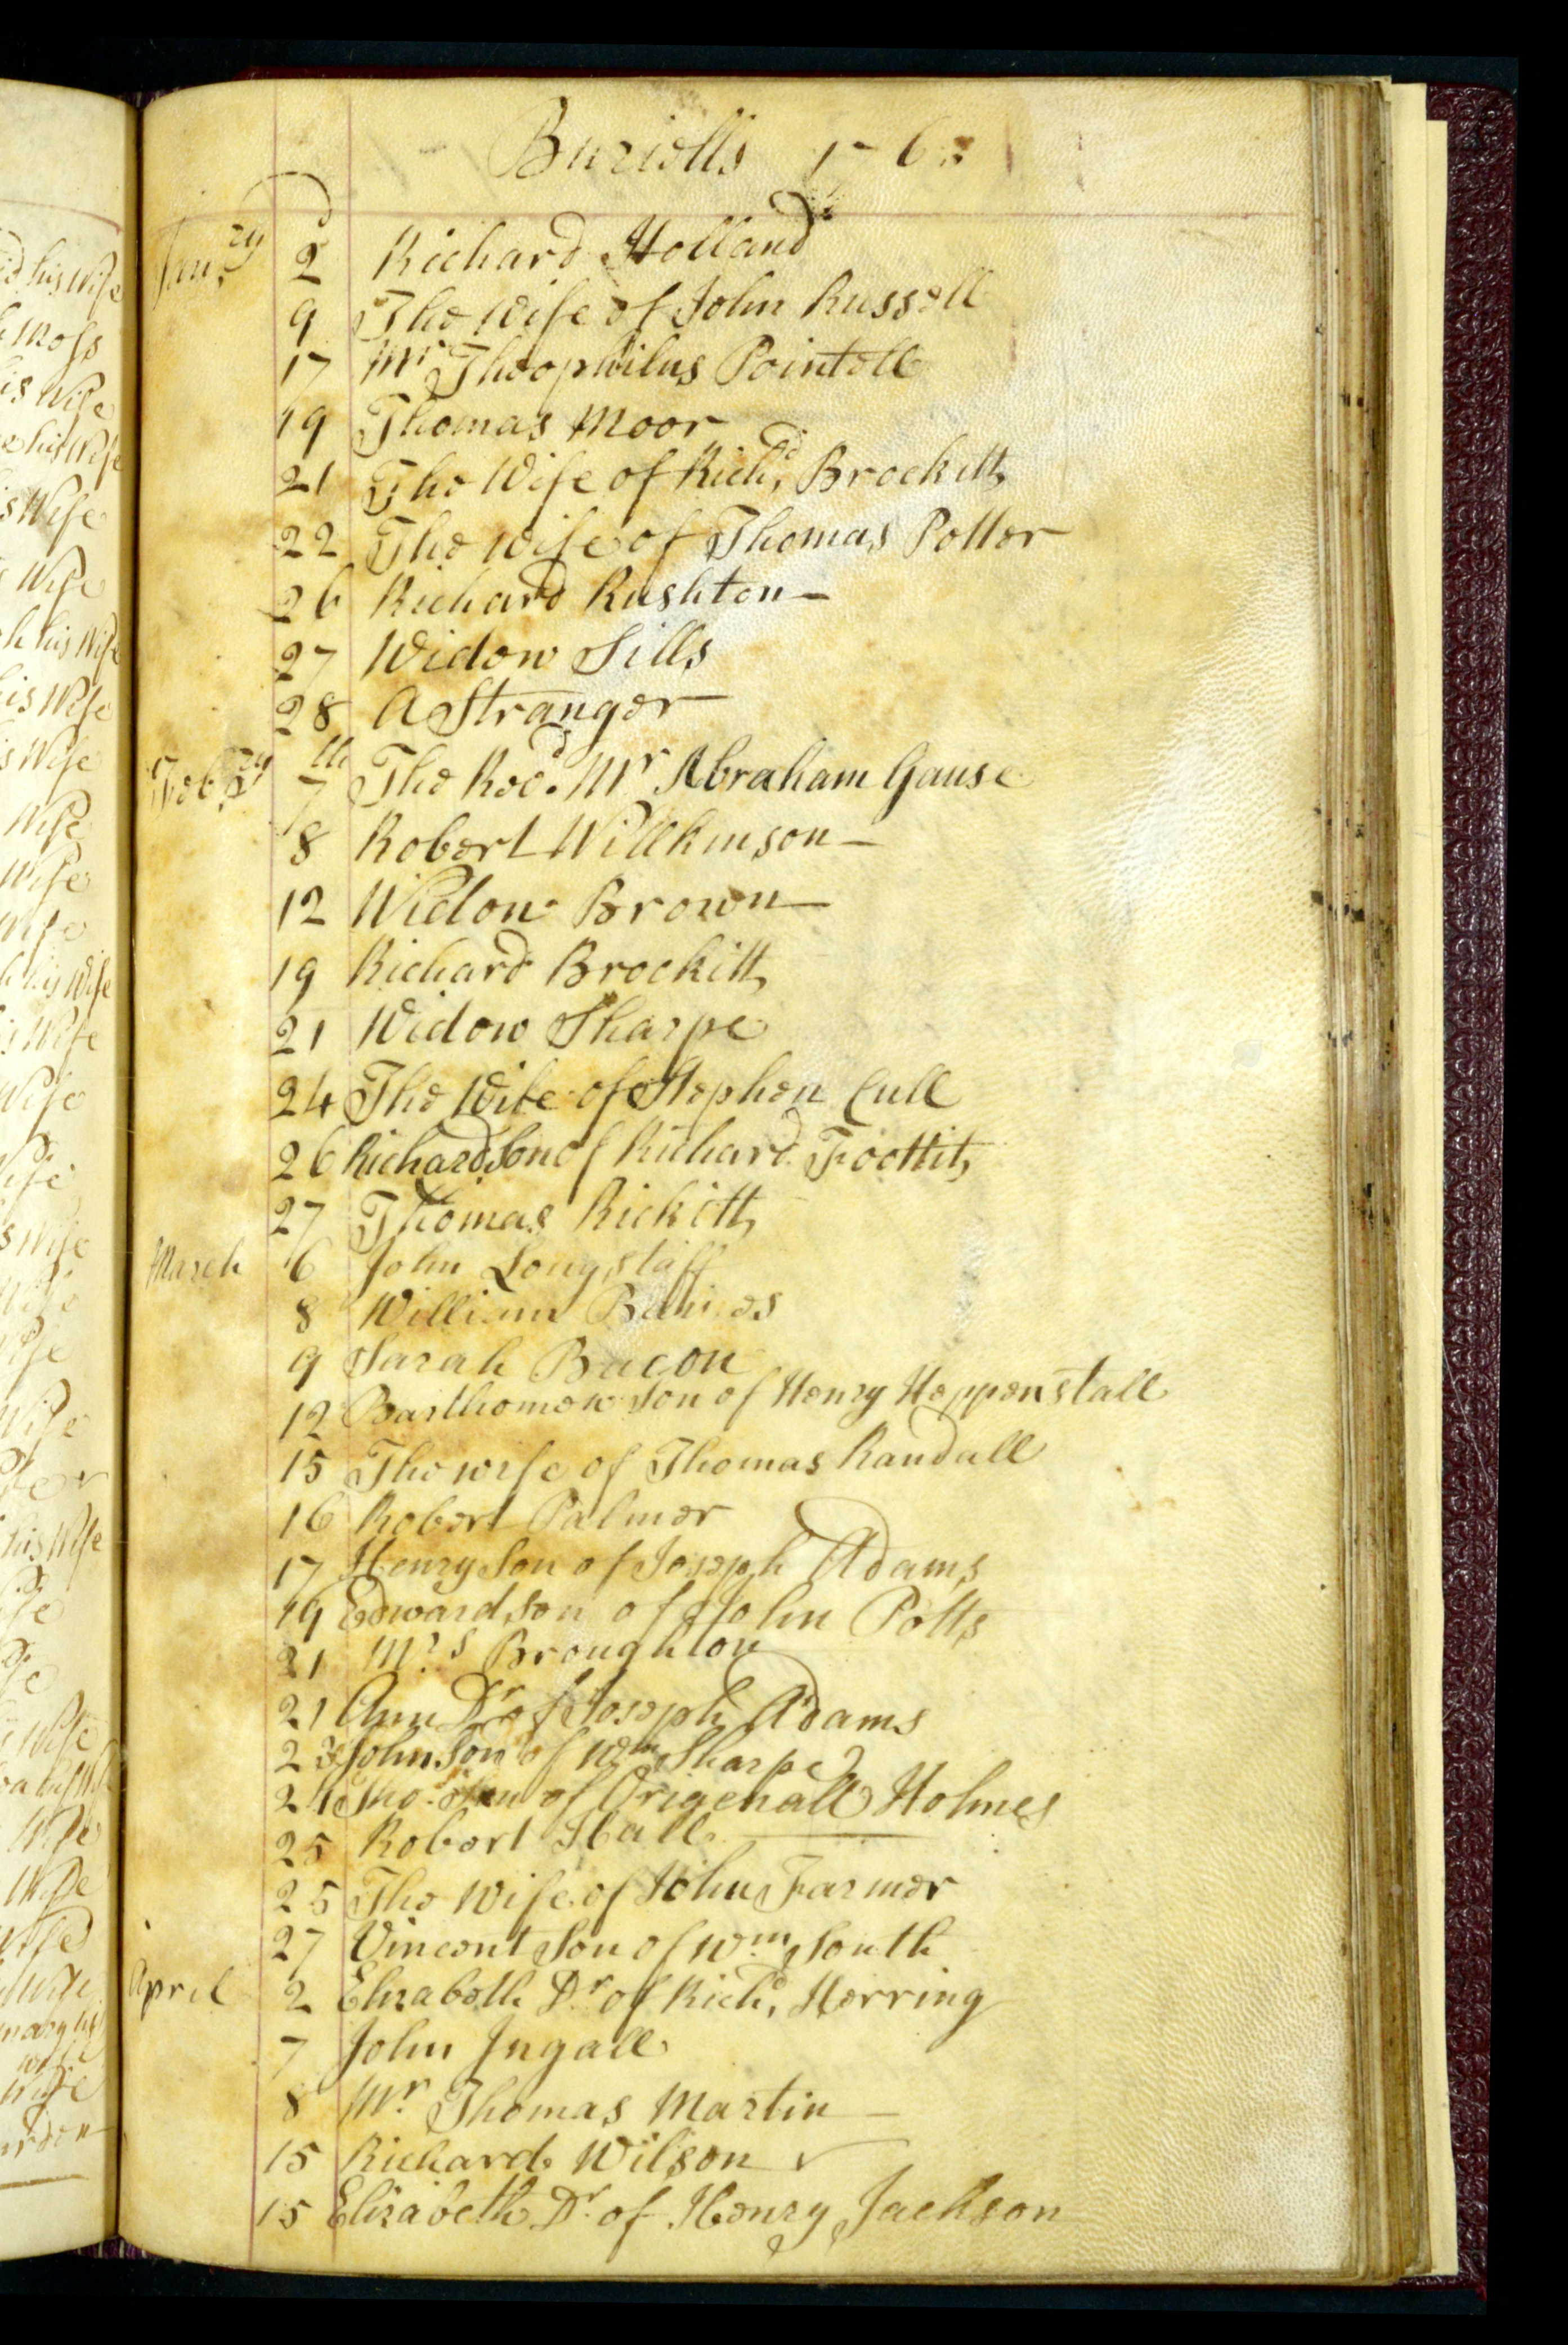 Buriells 176
Janry 2 Richard Holland
9 The Wife of John Russell
17 Mr Theophilus Pointell
19 Thomas Moor
21 The Wife of Richd, Brockitt
22 The Wife of Thomas Potter
26 Richard Rushton
27 Widow Sills
28 A Stranger
Febry 7th The Revd. Mr Abraham Gause
8 Robert Willkinson
12 Widow Brown
19 Richard Brockitt
21 Widow Sharpe
24 The Wife of Stephen Cull
26 Richard Son of Richard Foottit
27 Thomas Rickitt
March 6 John Longstaff
8 William Baines
9 Sarah Bacon
12 Barthomew Son of Henry Heppenstall
15 The wife of Thomas Randall
16 Robert Palmer
17 Henry Son of Joseph Adams
19 Edward Son of John Potts
21 Mrs Broughton
21 Ann Dr of Joseph Adams
23 John Son of Wm Sharpe
24 Tho Son of Origenall Holmes
25 Robert Hall
25 The Wife of John Farmer
27 Vincent Son of Wm South
April 2 Elizabeth Dr of Richd, Herring
7 John Ingall
8 Mr. Thomas Martin
15 Richard Wilson
15 Elizabeth Dr. of Henry Jackson
his Wife
Moss
his Wife
his Wife
Wife
Wife
his Wife
his Wife
Wife
Wife
Wife
Wife
his Wife